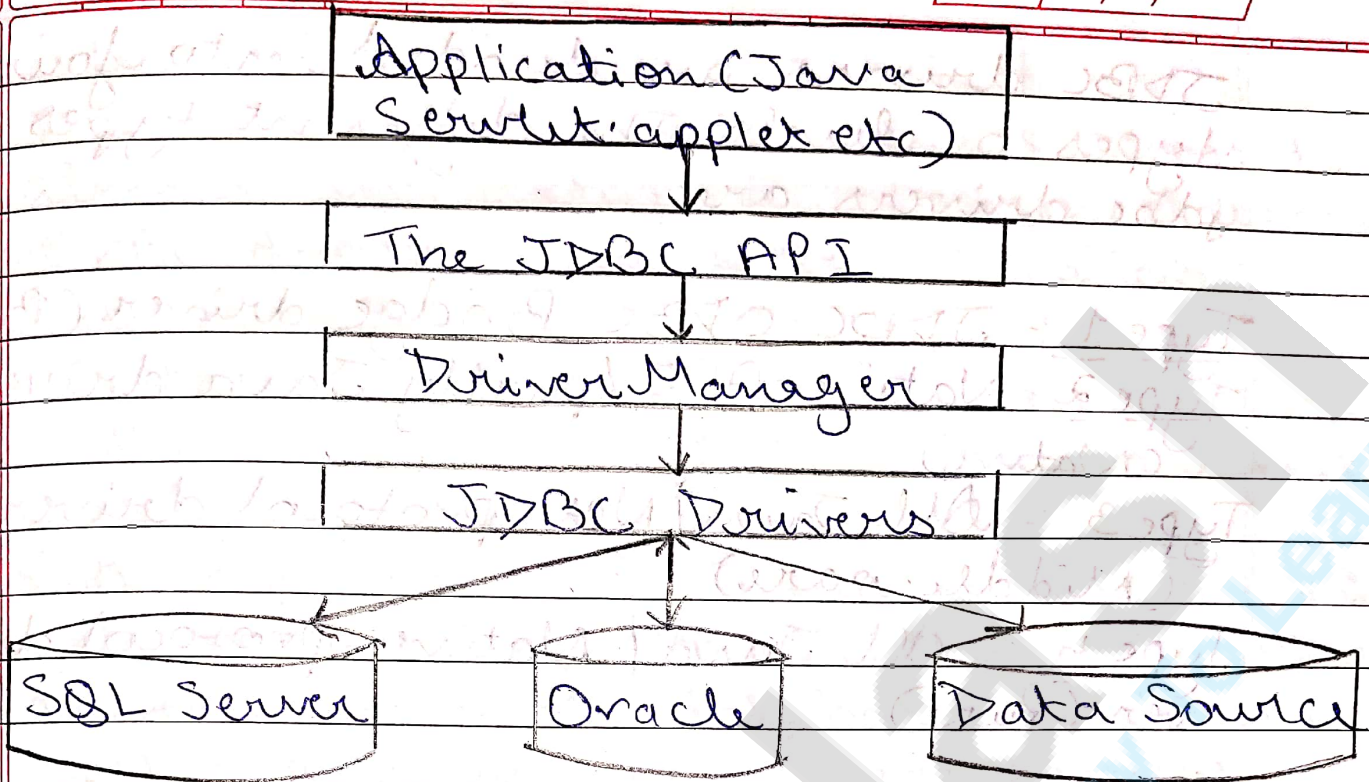 Application (Java
Servlet. applet etc)
The JDBC API
Driver Manager
JDBC Drivers
SQL Server
Oracle
Data Source